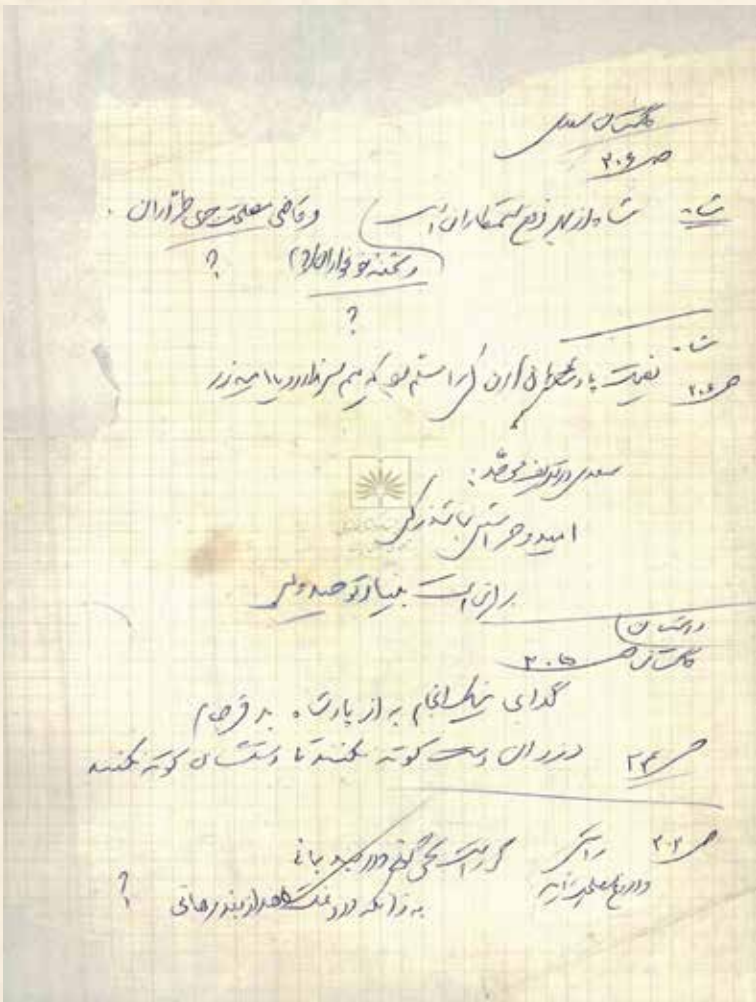 گلستان سعدی
ص ۲۰۶
شاه شاه از بهر دفع ستمکاران است و قاضی مصلحت جوی طرّاران.
و شحنه خونخواران (؟) ؟
؟
شاه
ص ۲۰۶ نصیحت پادشاهان کردن کسی را مسلم بود که بیم سر ندارد و یا امید زر
سعدی در تعریف موحّد:
امید و هراسش نباشد ز کس
بر این است بنیاد توحید و بس
گلستان ص ۲۰۵
گدای نیک انجام به از پادشاه بد فرجام
ص ۲۳۴ دزدان دست کوته نکنند تا دستشان کوته نکنند
ص ۲۰۲ راستی گر راست سخن گویی و در بند بمانی
و دروغ مصلحت آمیز به زانکه دروغت دهد از بند رهائی ؟